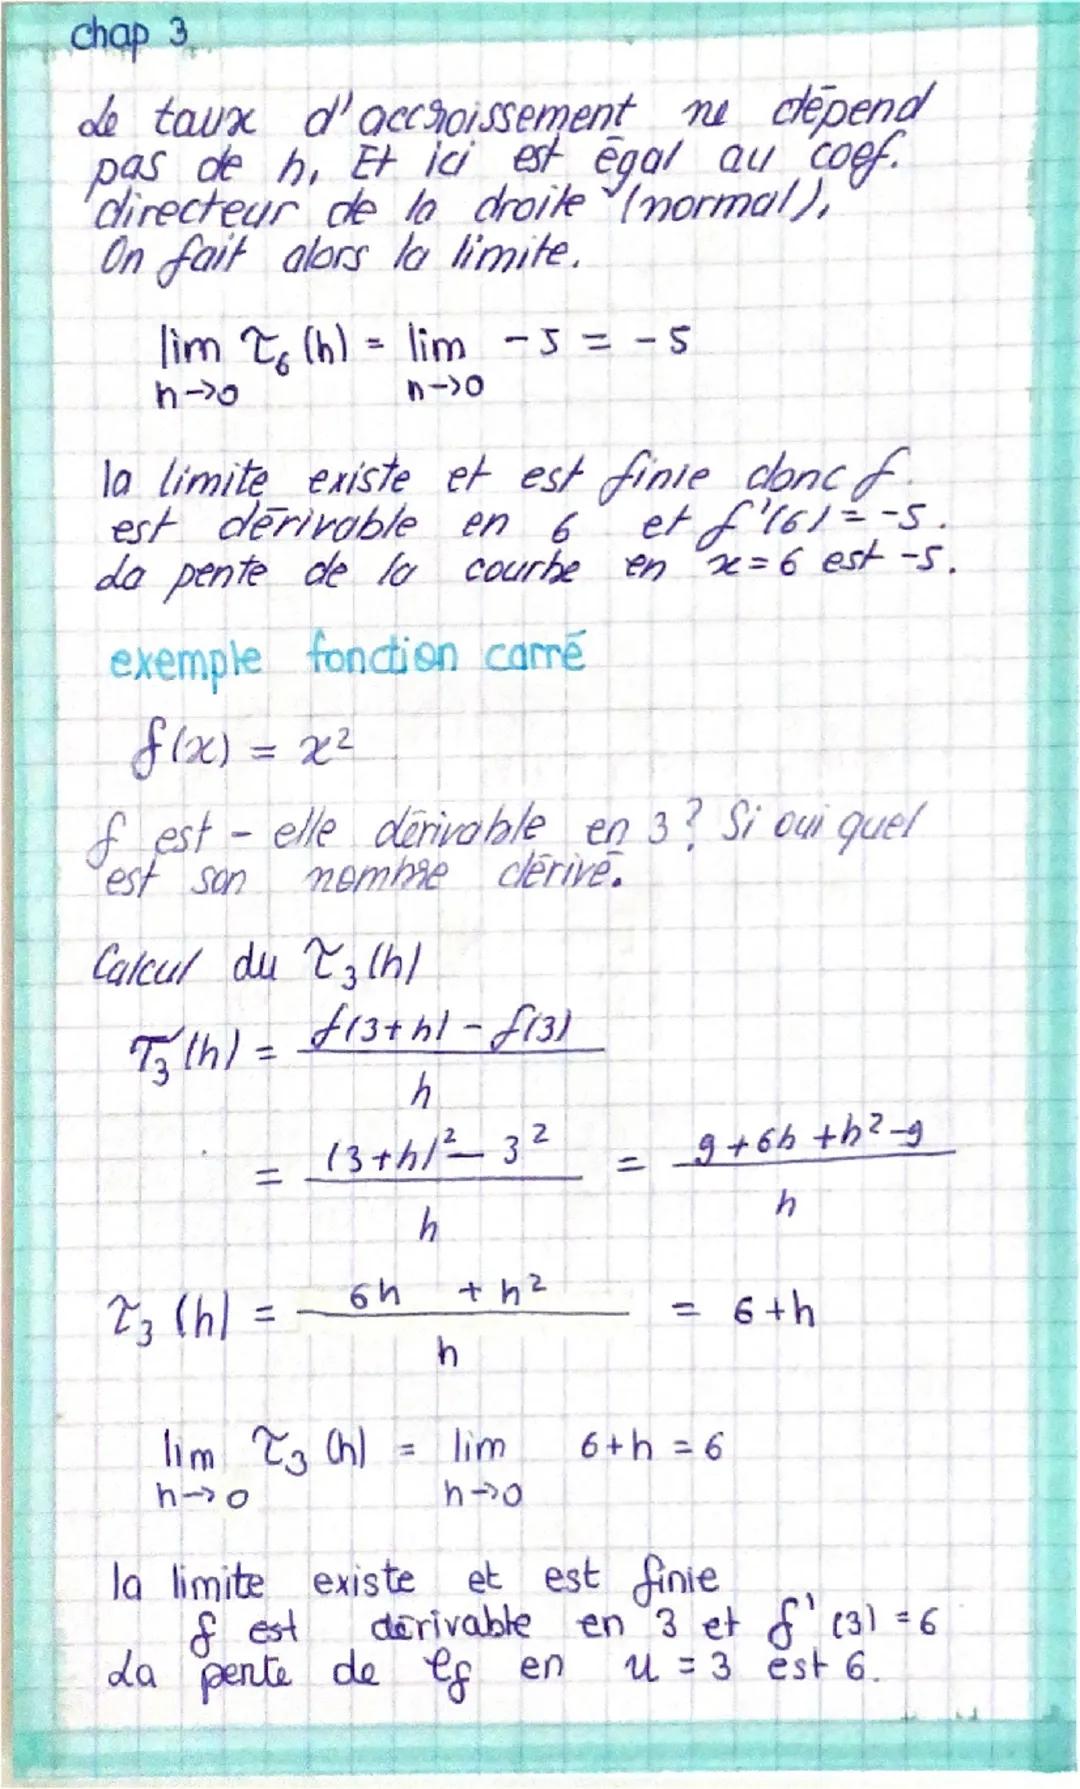 chap 3
Le taux d'accroissement ne dépend
pas de h. Et ici est égal au coef.
directeur de la droite (normal).
On fait alors la limite.
lim τ₆ (h) = lim -5 = -5
h→0 h→0
la limite existe et est finie donc f.
est dérivable en 6 et f'(6) = -5.
La pente de la courbe en x=6 est -5.
exemple fonction carré
f(x) = x²
f est-elle dérivable en 3? Si oui quel
est son nombre dérivé.
Calcul du τ₃(h)
τ₃(h) = f(3+h) - f(3)
h
= (3+h)² - 3² = 9+6h+h²-9
h h
τ₃(h) = 6h + h² = 6+h
h
lim τ₃(h) = lim 6+h = 6
h→0 h→0
la limite existe et est finie
f est dérivable en 3 et f'(3) = 6
La pente de Cf en x = 3 est 6.